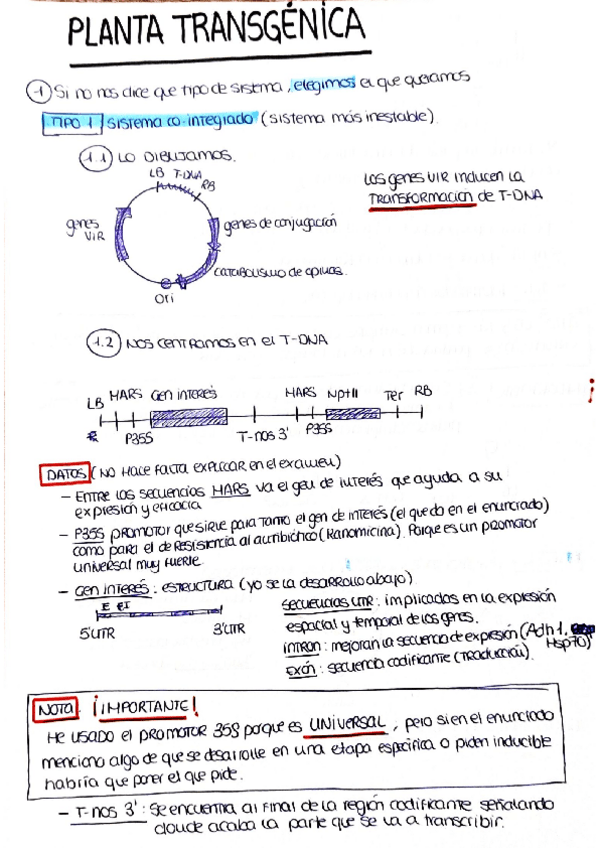 PLANTA TRANSGÉNICA
1 Si no nos dice que tipo de sistema, elegimos el que queramos
TIPO 1 SISTEMA CO-INTEGRADO (SISTEMA MÁS INESTABLE).
1.1 LO DIBUJAMOS.
LB T-DNA
RB
genes VIR
genes de conjugación
catabolismo de opinas.
Ori
Los genes VIR inducen la
TRANSFORMACIÓN de T-DNA
1.2 NOS CENTRAMOS EN el T-DNA
LB MARS Gen interés MARS NptII Ter RB
P35S T-nos 3' P35S
DATOS (NO HACE FALTA EXPLICAR en el examen)
- ENTRE LAS SECUENCIAS MARS va el gen de interés que ayuda a su
expresión y eficacia
- P35S PROMOTOR que sirve para tanto el gen de interés (el que da en el enunciado)
como para el de RESISTENCIA al antibiótico (Kanamicina). Porque es un promotor
universal muy fuerte.
- Gen interés: ESTRUCTURA (yo se la desarrollo abajo).
E
5'UTR 3'UTR
SECUENCIAS UTR: implicados en la expresión
espacial y temporal de los genes.
INTRÓN: mejoran la secuencia de expresión (Adh1,
Hsp70)
EXÓN: secuencia codificante (TRADUCCIÓN).
NOTA ¡IMPORTANTE!
He usado el PROMOTOR 35S porque es UNIVERSAL, pero si en el enunciado
menciona algo de que se desarrolle en una etapa específica o piden inducible
habría que poner el que pide.
- T-nos 3': Se encuentra al final de la región codificante señalando
donde acaba la parte que se va a transcribir.